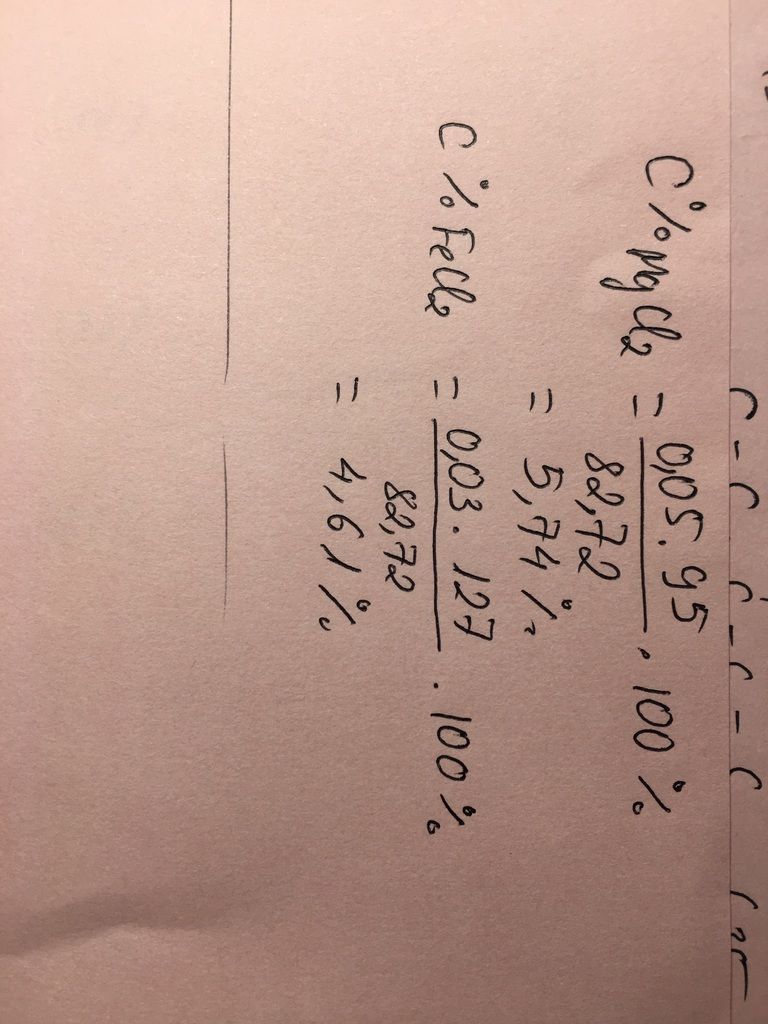 C% MgCl2 = 0,05 . 95 / 82,72 . 100%
= 5,74%
C% FeCl2 = 0,03 . 127 / 82,72 . 100%
= 4,61%